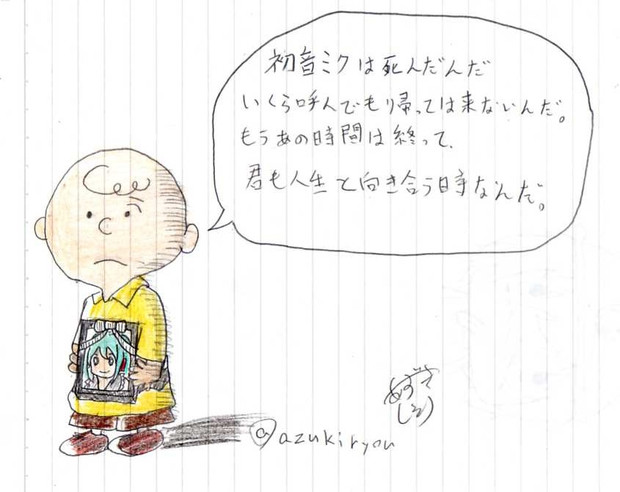 初音ミクは死んだんだ
いくら呼んでも帰っては来ないんだ。
もうあの時間は終って、
君も人生と向き合う時なんだ。
あずき
@azukiryou